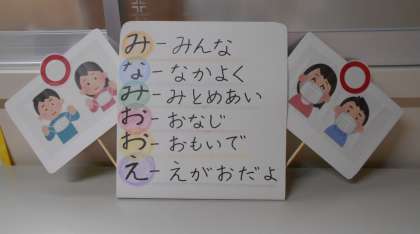 み-みんな
な-なかよく
み-みとめあい
お-おなじ
お-おもいで
え-えがおだよ